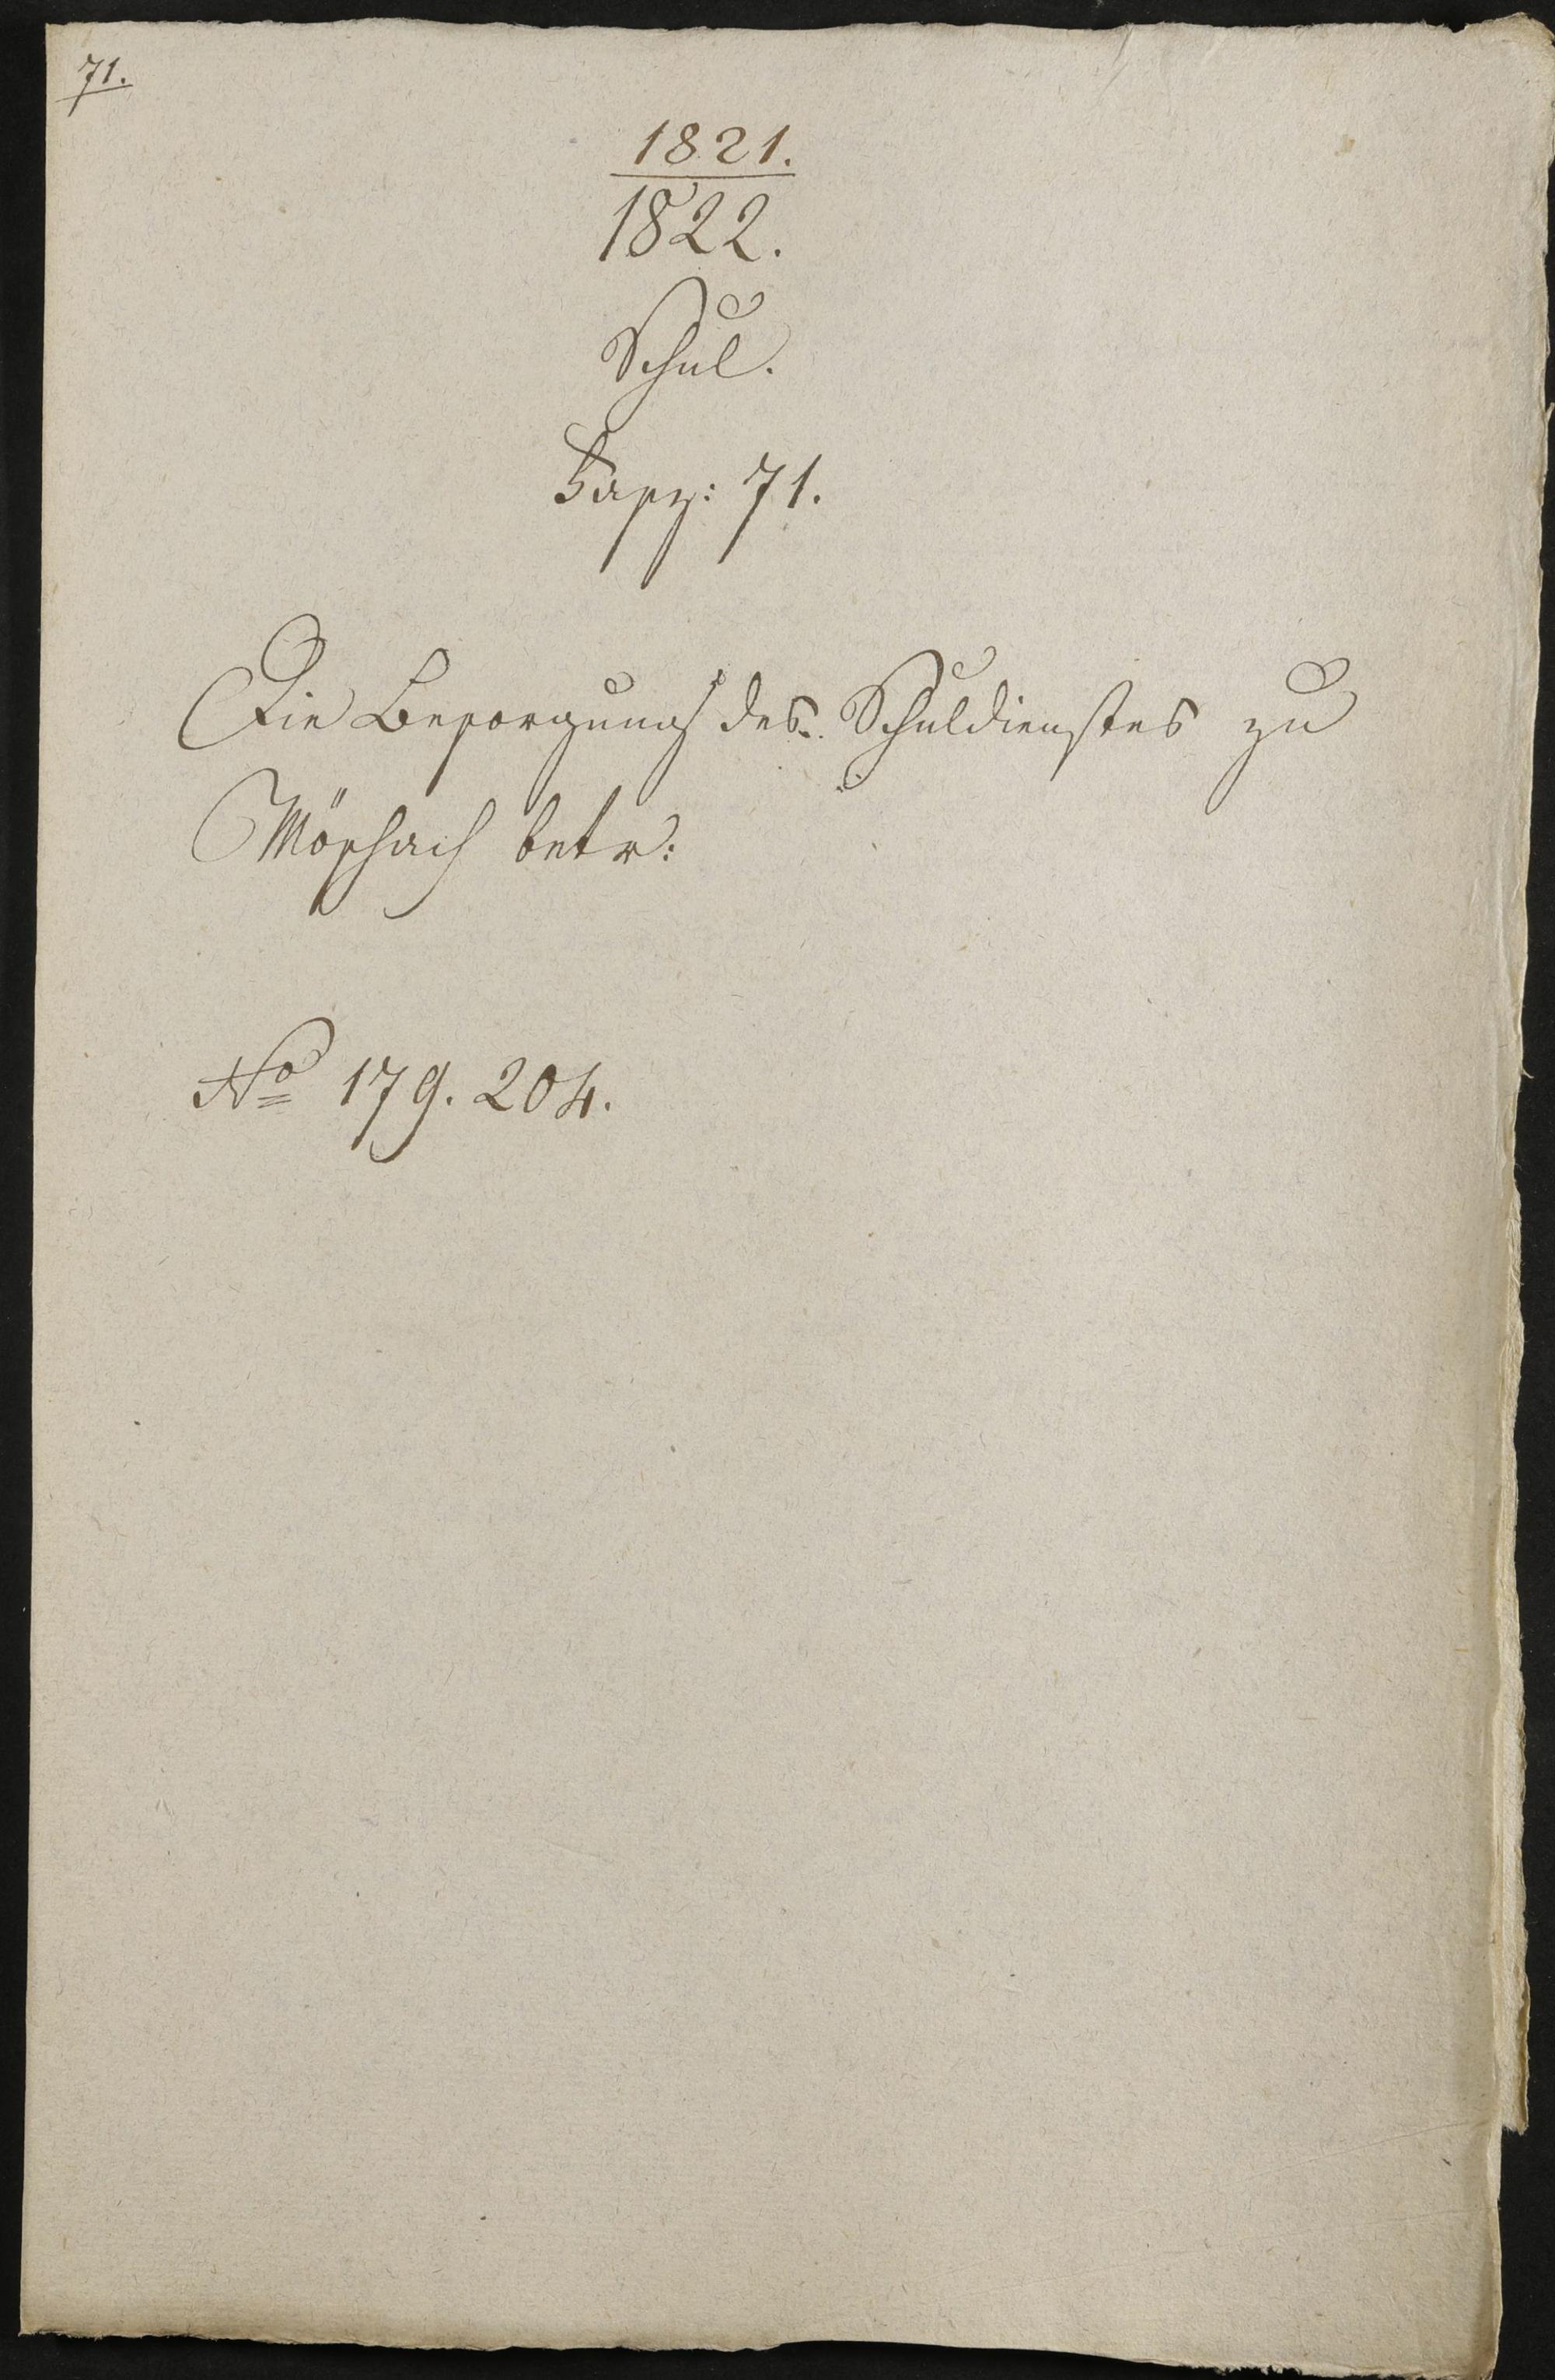 71.
1821.
1822.
Schul.
Fasz: 71.
Die Besorgung des Schuldienstes zu
Mösbach betr:
No 179. 204.